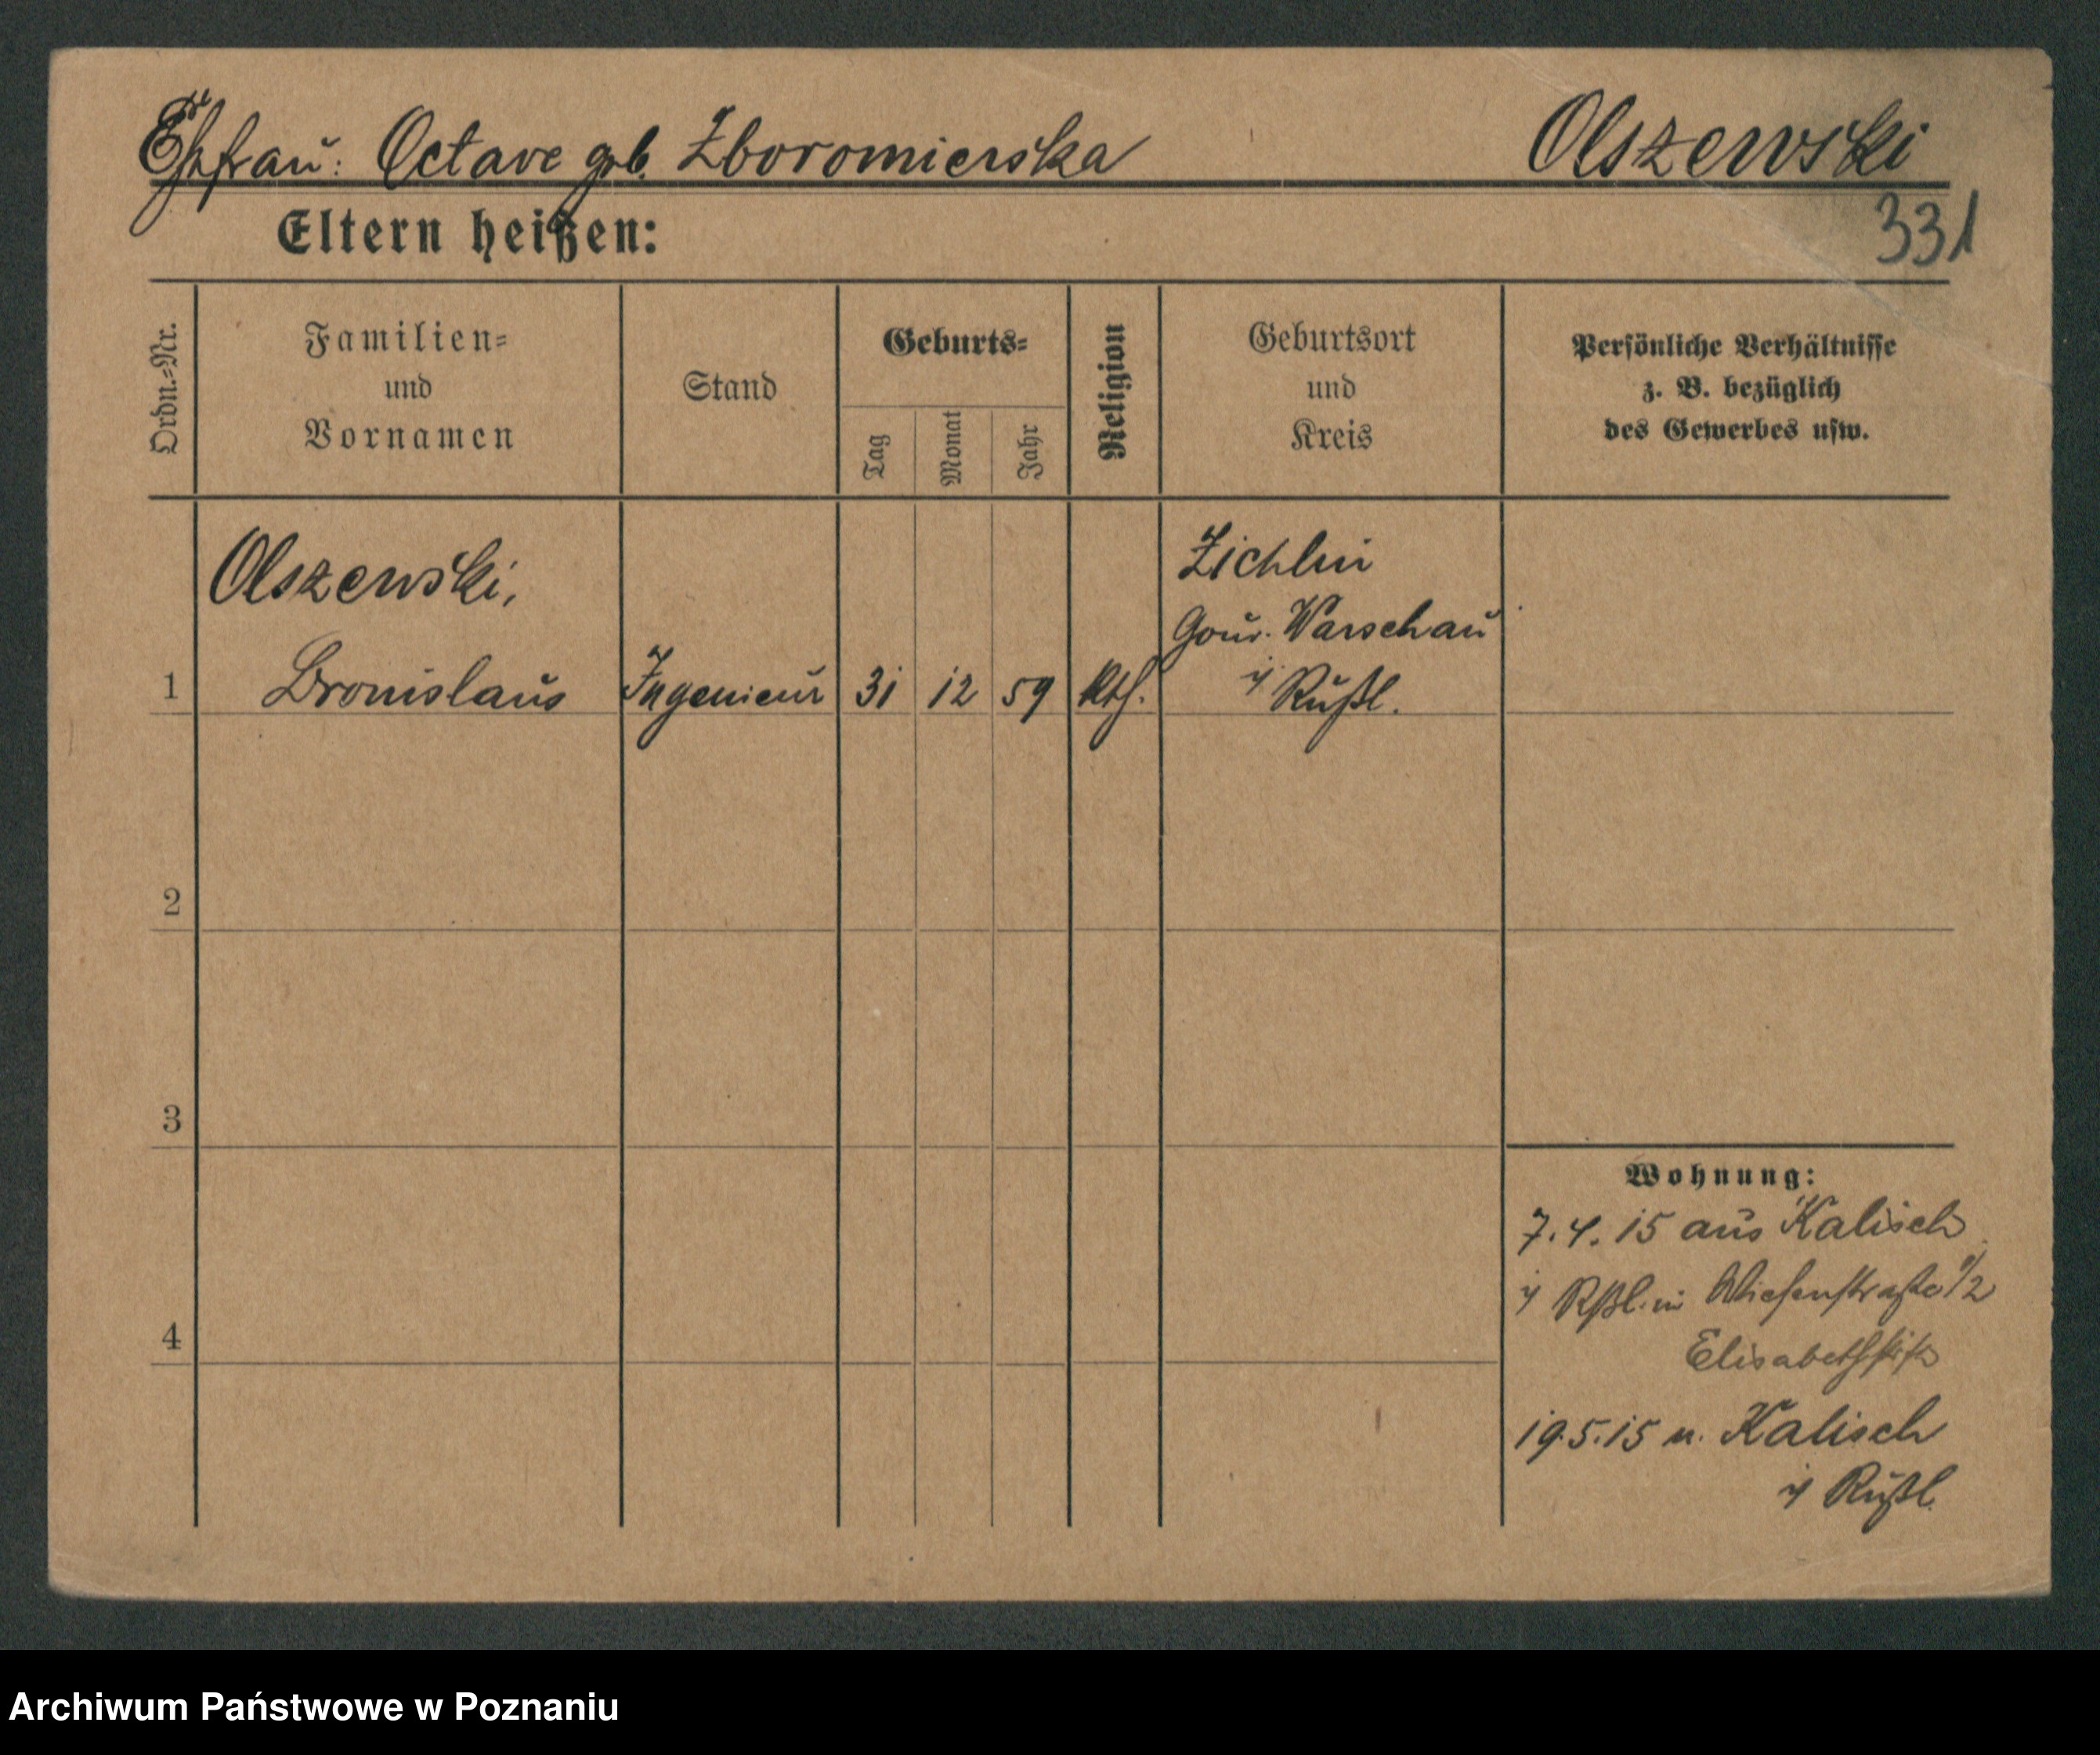 Ehefrau: Octave geb. Zboromierska Olszewski
331
Eltern heißen:
Ordn.=Nr.
Familien=
und
Vornamen
Stand
Geburts=
Tag
Monat
Jahr
Religion
Geburtsort
und
Kreis
Persönliche Verhältnisse
z. B. bezüglich
des Gewerbes usw.
Olszewski,
1 Bronislaus Ingenieur 31 12 59 kth.
Zichlin
Gouv. Warschau
i/ Rußl.
2
3
4
Wohnung:
7. 4. 15 aus Kalisch
i/ Rßl. in Wiesenstraße 1/2
Elisabethstift
19.5.15 n. Kalisch
i/ Rußl.
Archiwum Państwowe w Poznaniu